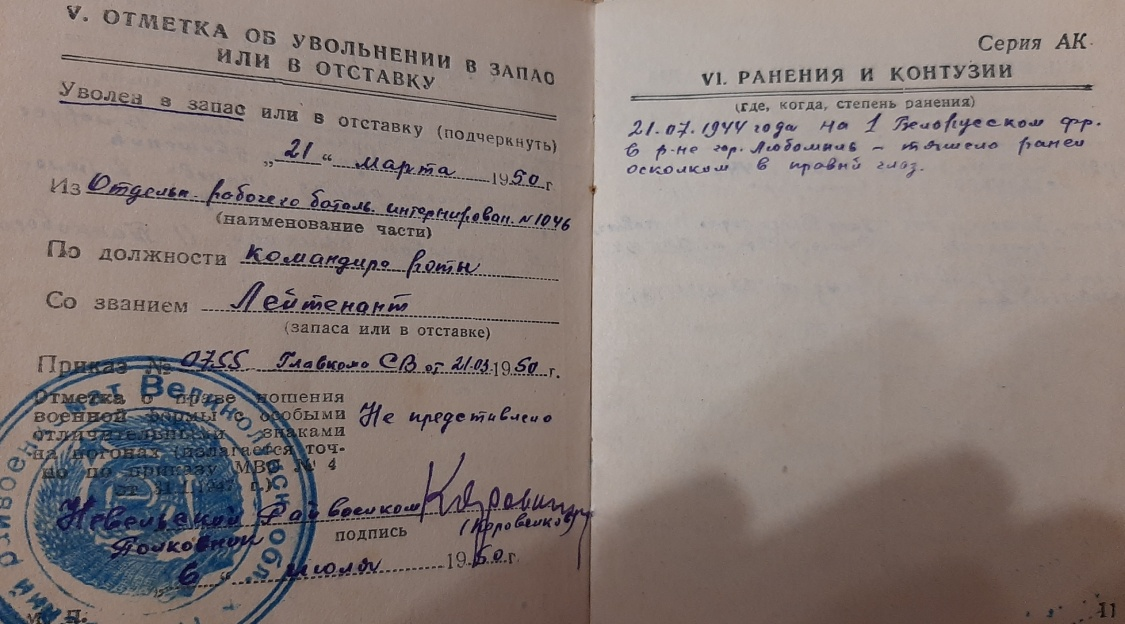 V. ОТМЕТКА ОБ УВОЛЬНЕНИИ В ЗАПАС
ИЛИ В ОТСТАВКУ
Уволен в запас или в отставку (подчеркнуть)
„21“ марта 1950 г.
Из Отдельн. рабочего баталь. интернирован. №1046
(наименование части)
По должности командира роты
Со званием Лейтенант
(запаса или в отставке)
Приказ № 0755 Главкома СВ от 21.03.1950 г.
Отметка о праве ношения
военной формы с особыми
отличительными знаками
на погонах (излагается точ-
но по приказу МВС № 4
г.)
Не представлено
Невельский Райвоенком
(Коровников)
Полковник подпись
6 “ июля 1950 г.
М. П.
Великолукск. обл.
Серия АК
VI. РАНЕНИЯ И КОНТУЗИИ
(где, когда, степень ранения)
21.07.1944 года на 1 Белорусском фр.
в р-не гор. Любомль – тяжело ранен
осколком в правый глаз.
11